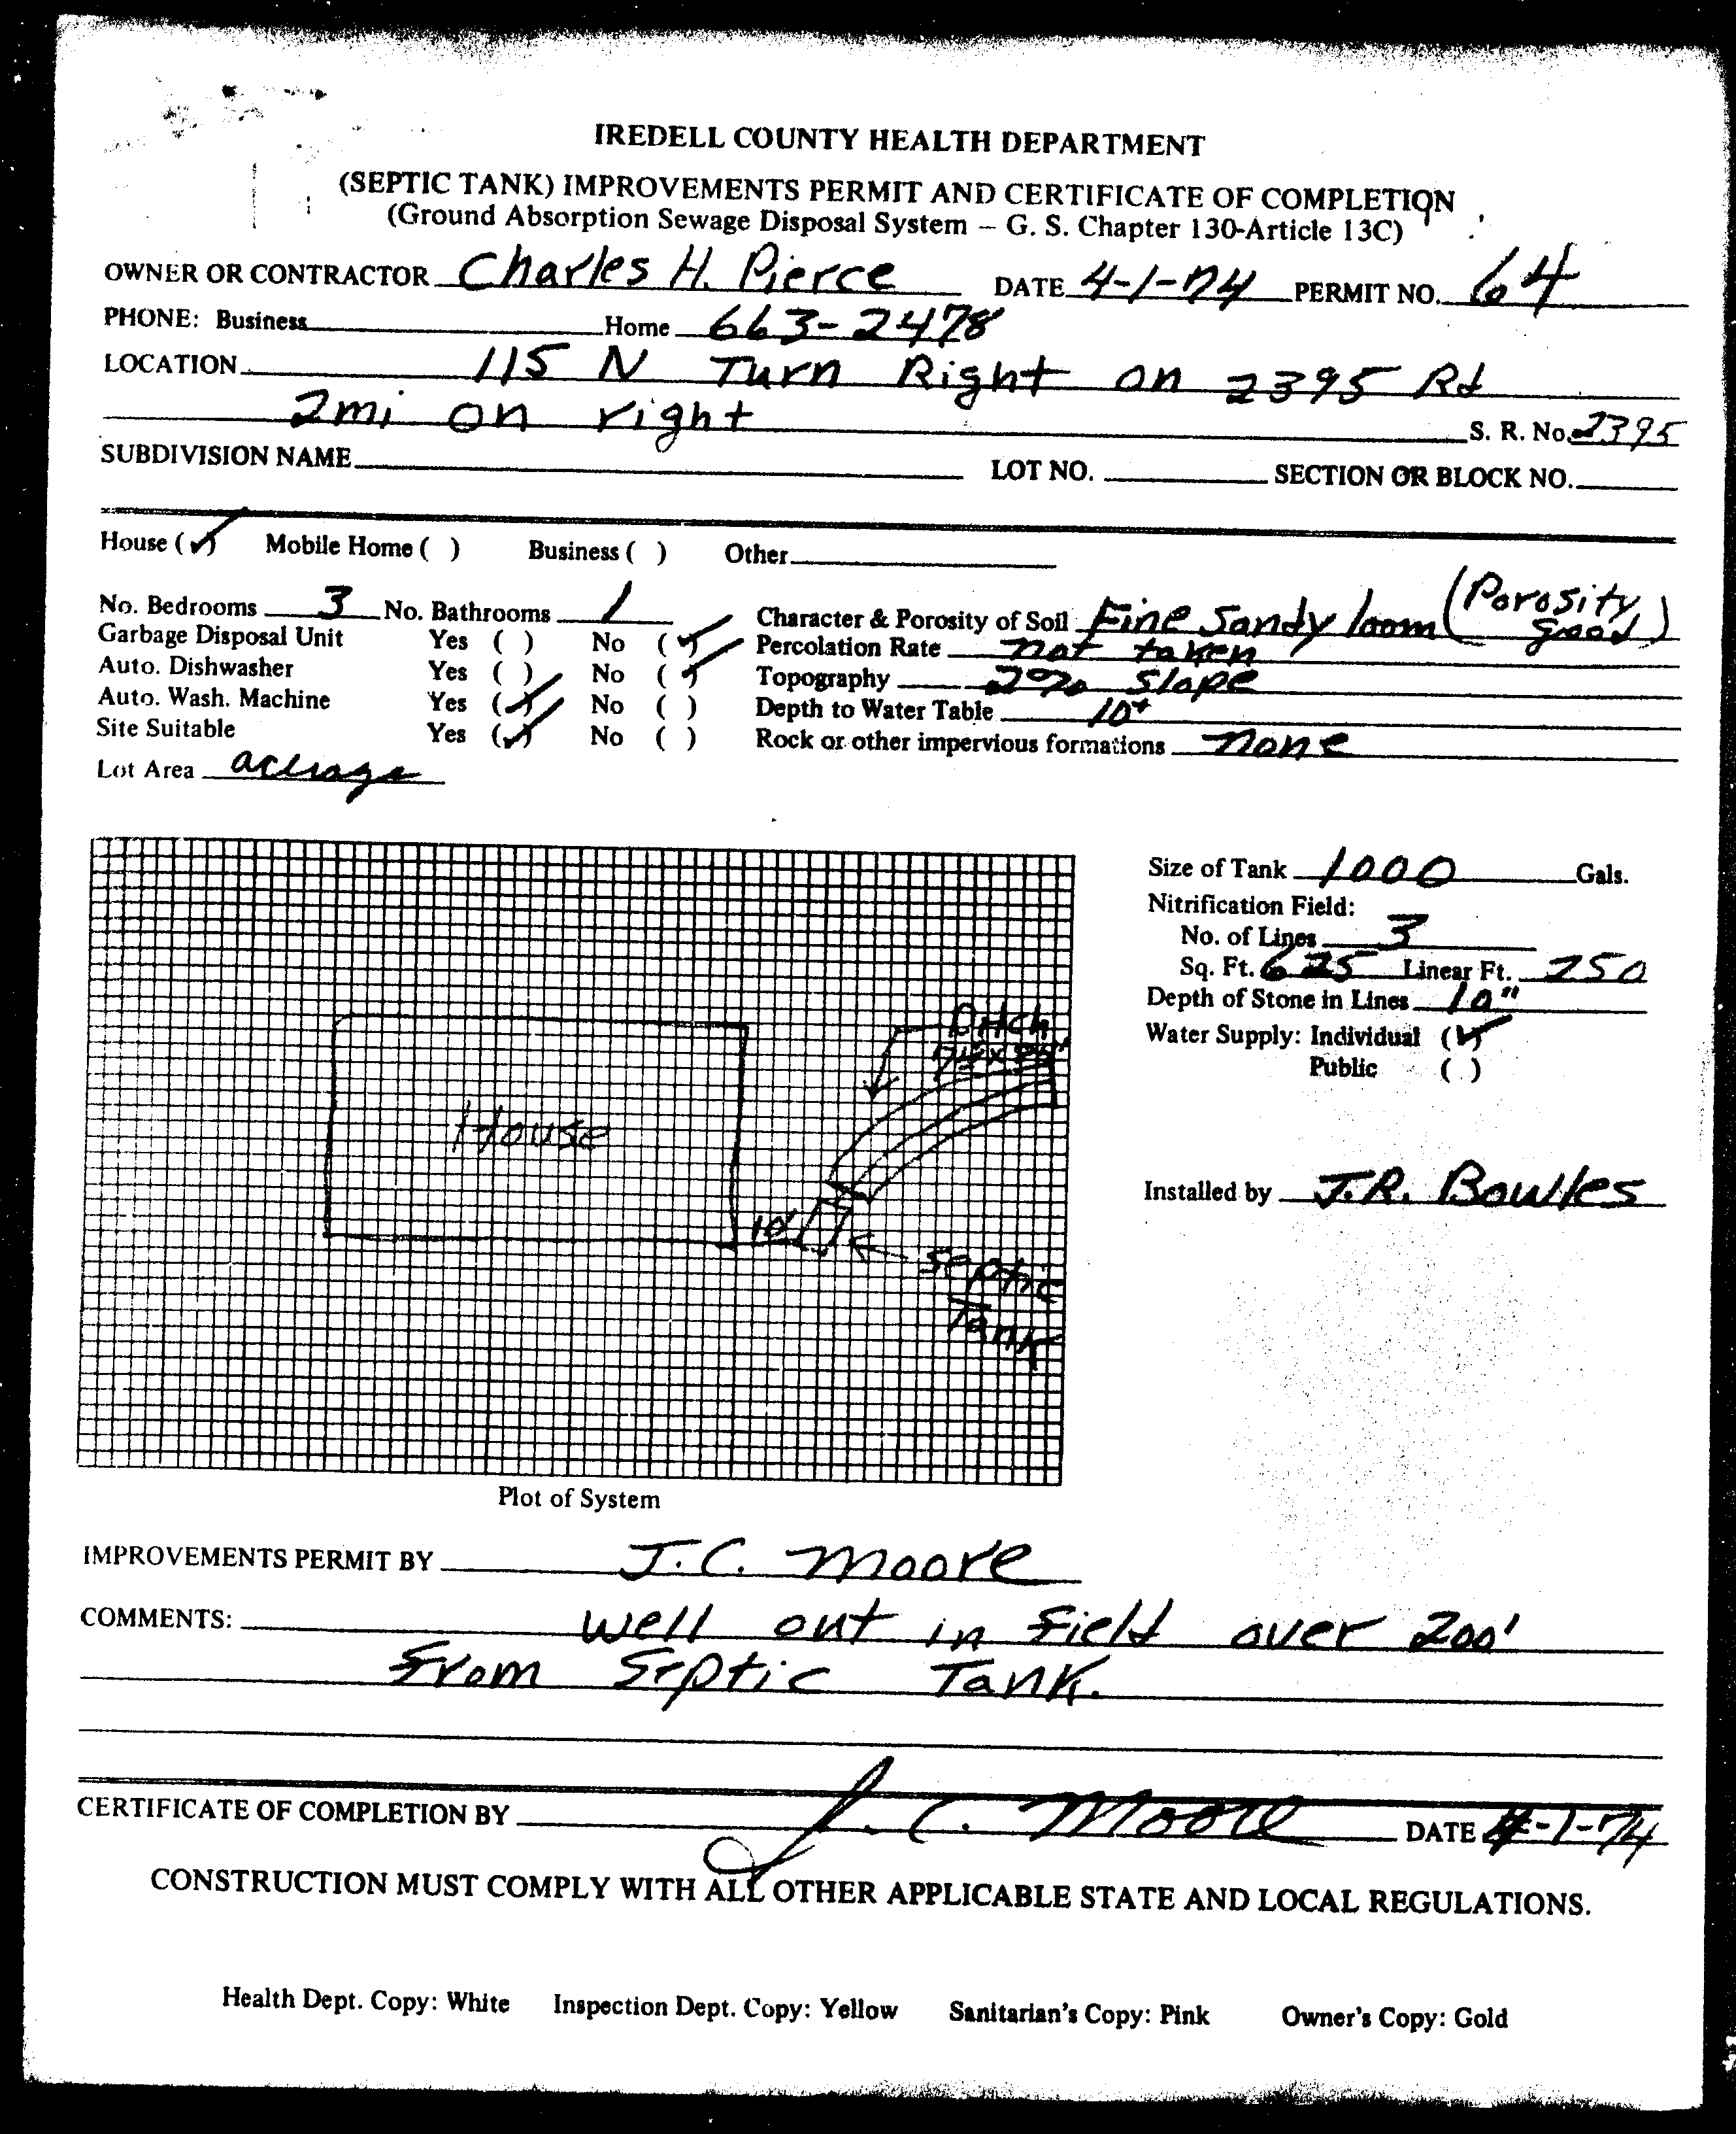 IREDELL COUNTY HEALTH DEPARTMENT
(SEPTIC TANK) IMPROVEMENTS PERMIT AND CERTIFICATE OF COMPLETION
(Ground Absorption Sewage Disposal System – G. S. Chapter 130-Article 13C)
OWNER OR CONTRACTOR Charles H. Pierce DATE 4-1-74 PERMIT NO. 64
PHONE: Business Home 663-2478
LOCATION 115 N Turn Right on 2395 Rd
2mi on right S. R. No. 2395
SUBDIVISION NAME LOT NO. SECTION OR BLOCK NO.
House (✓) Mobile Home ( ) Business ( ) Other
No. Bedrooms 3 No. Bathrooms 1 Character & Porosity of Soil Fine Sandy loom (Porosity good)
Garbage Disposal Unit Yes ( ) No (✓) Percolation Rate not taken
Auto. Dishwasher Yes ( ) No (✓) Topography 2% slope
Auto. Wash. Machine Yes (✓) No ( ) Depth to Water Table 10+
Site Suitable Yes (✓) No ( ) Rock or other impervious formations none
Lot Area acerage
Size of Tank 1000 Gals.
Nitrification Field:
No. of Lines 3
Sq. Ft. 625 Linear Ft. 250
Depth of Stone in Lines 10"
Water Supply: Individual (✓)
Public ( )
Installed by J.R. Bowles
Ditch
House
10'
Septic
Tank
Plot of System
IMPROVEMENTS PERMIT BY J.C. Moore
COMMENTS: Well out in field over 200'
from Septic Tank.
CERTIFICATE OF COMPLETION BY J. C. Moore DATE 4-1-74
CONSTRUCTION MUST COMPLY WITH ALL OTHER APPLICABLE STATE AND LOCAL REGULATIONS.
Health Dept. Copy: White Inspection Dept. Copy: Yellow Sanitarian's Copy: Pink Owner's Copy: Gold